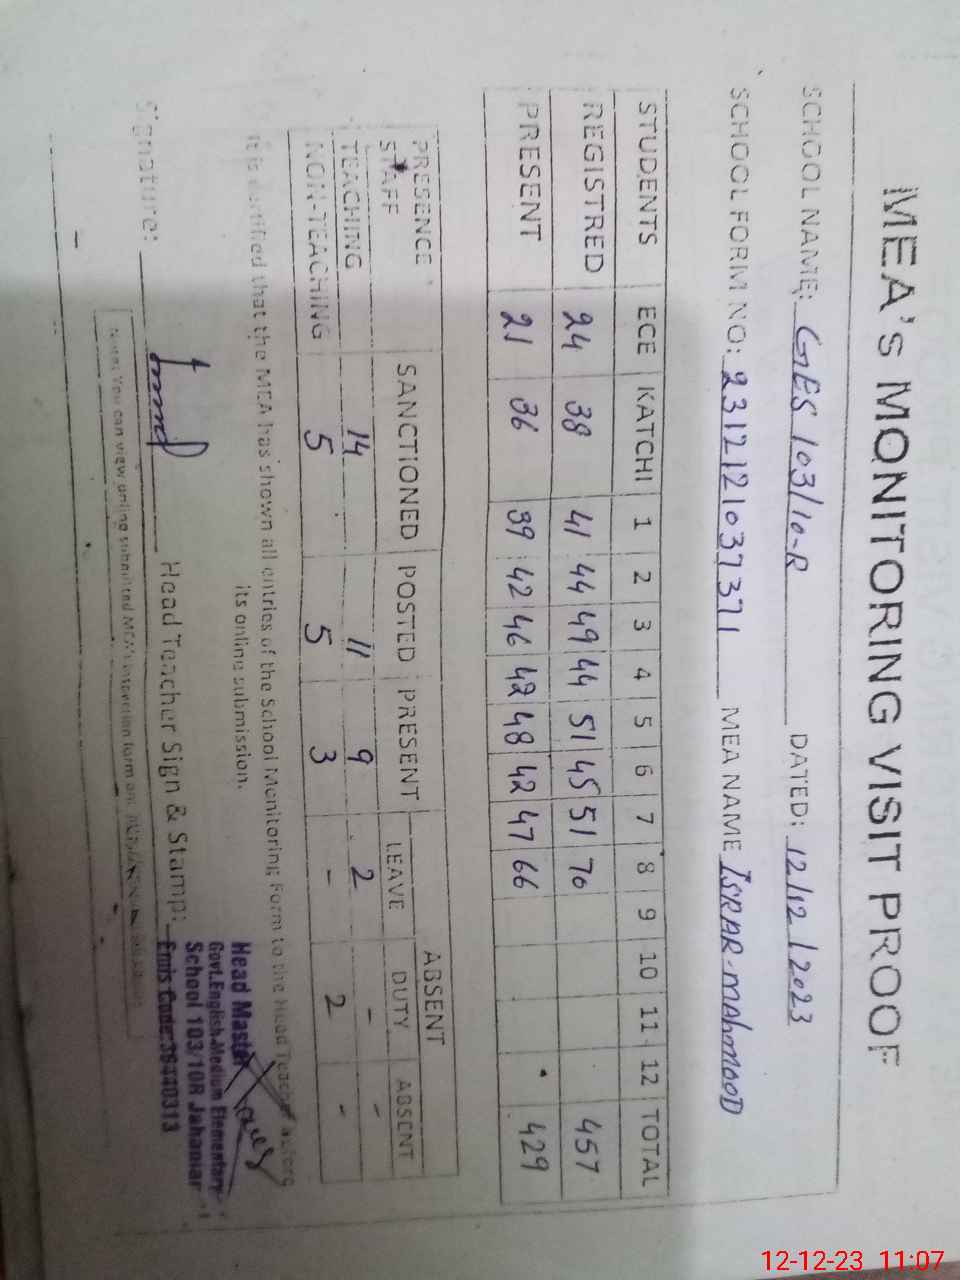 MEA's MONITORING VISIT PROOF
SCHOOL NAME: GES 103/10-R DATED: 12/12/2023
SCHOOL FORM NO: 2312121037371 MEA NAME ISRAR-MAhMOOD
STUDENTS ECE KATCHI 1 2 3 4 5 6 7 8 9 10 11 12 TOTAL
REGISTRED 24 38 41 44 49 44 51 45 51 70 457
PRESENT 21 36 39 42 46 42 48 42 47 66 429
PRESENCE SANCTIONED POSTED PRESENT ABSENT
STAFF LEAVE DUTY ABSENT
TEACHING 14 11 9 2 - -
NON-TEACHING 5 5 3 - 2 -
It is certified that the MEA has shown all entries of the School Monitoring Form to the Head Teacher
its online submission.
Signature: Head Teacher Sign & Stamp:
Head Master
Govt.English Medium Elementary
School 103/10R Jahanian
Emis Code:36440313
Note: You can view online submitted MEA's inspection form
12-12-23 11:07